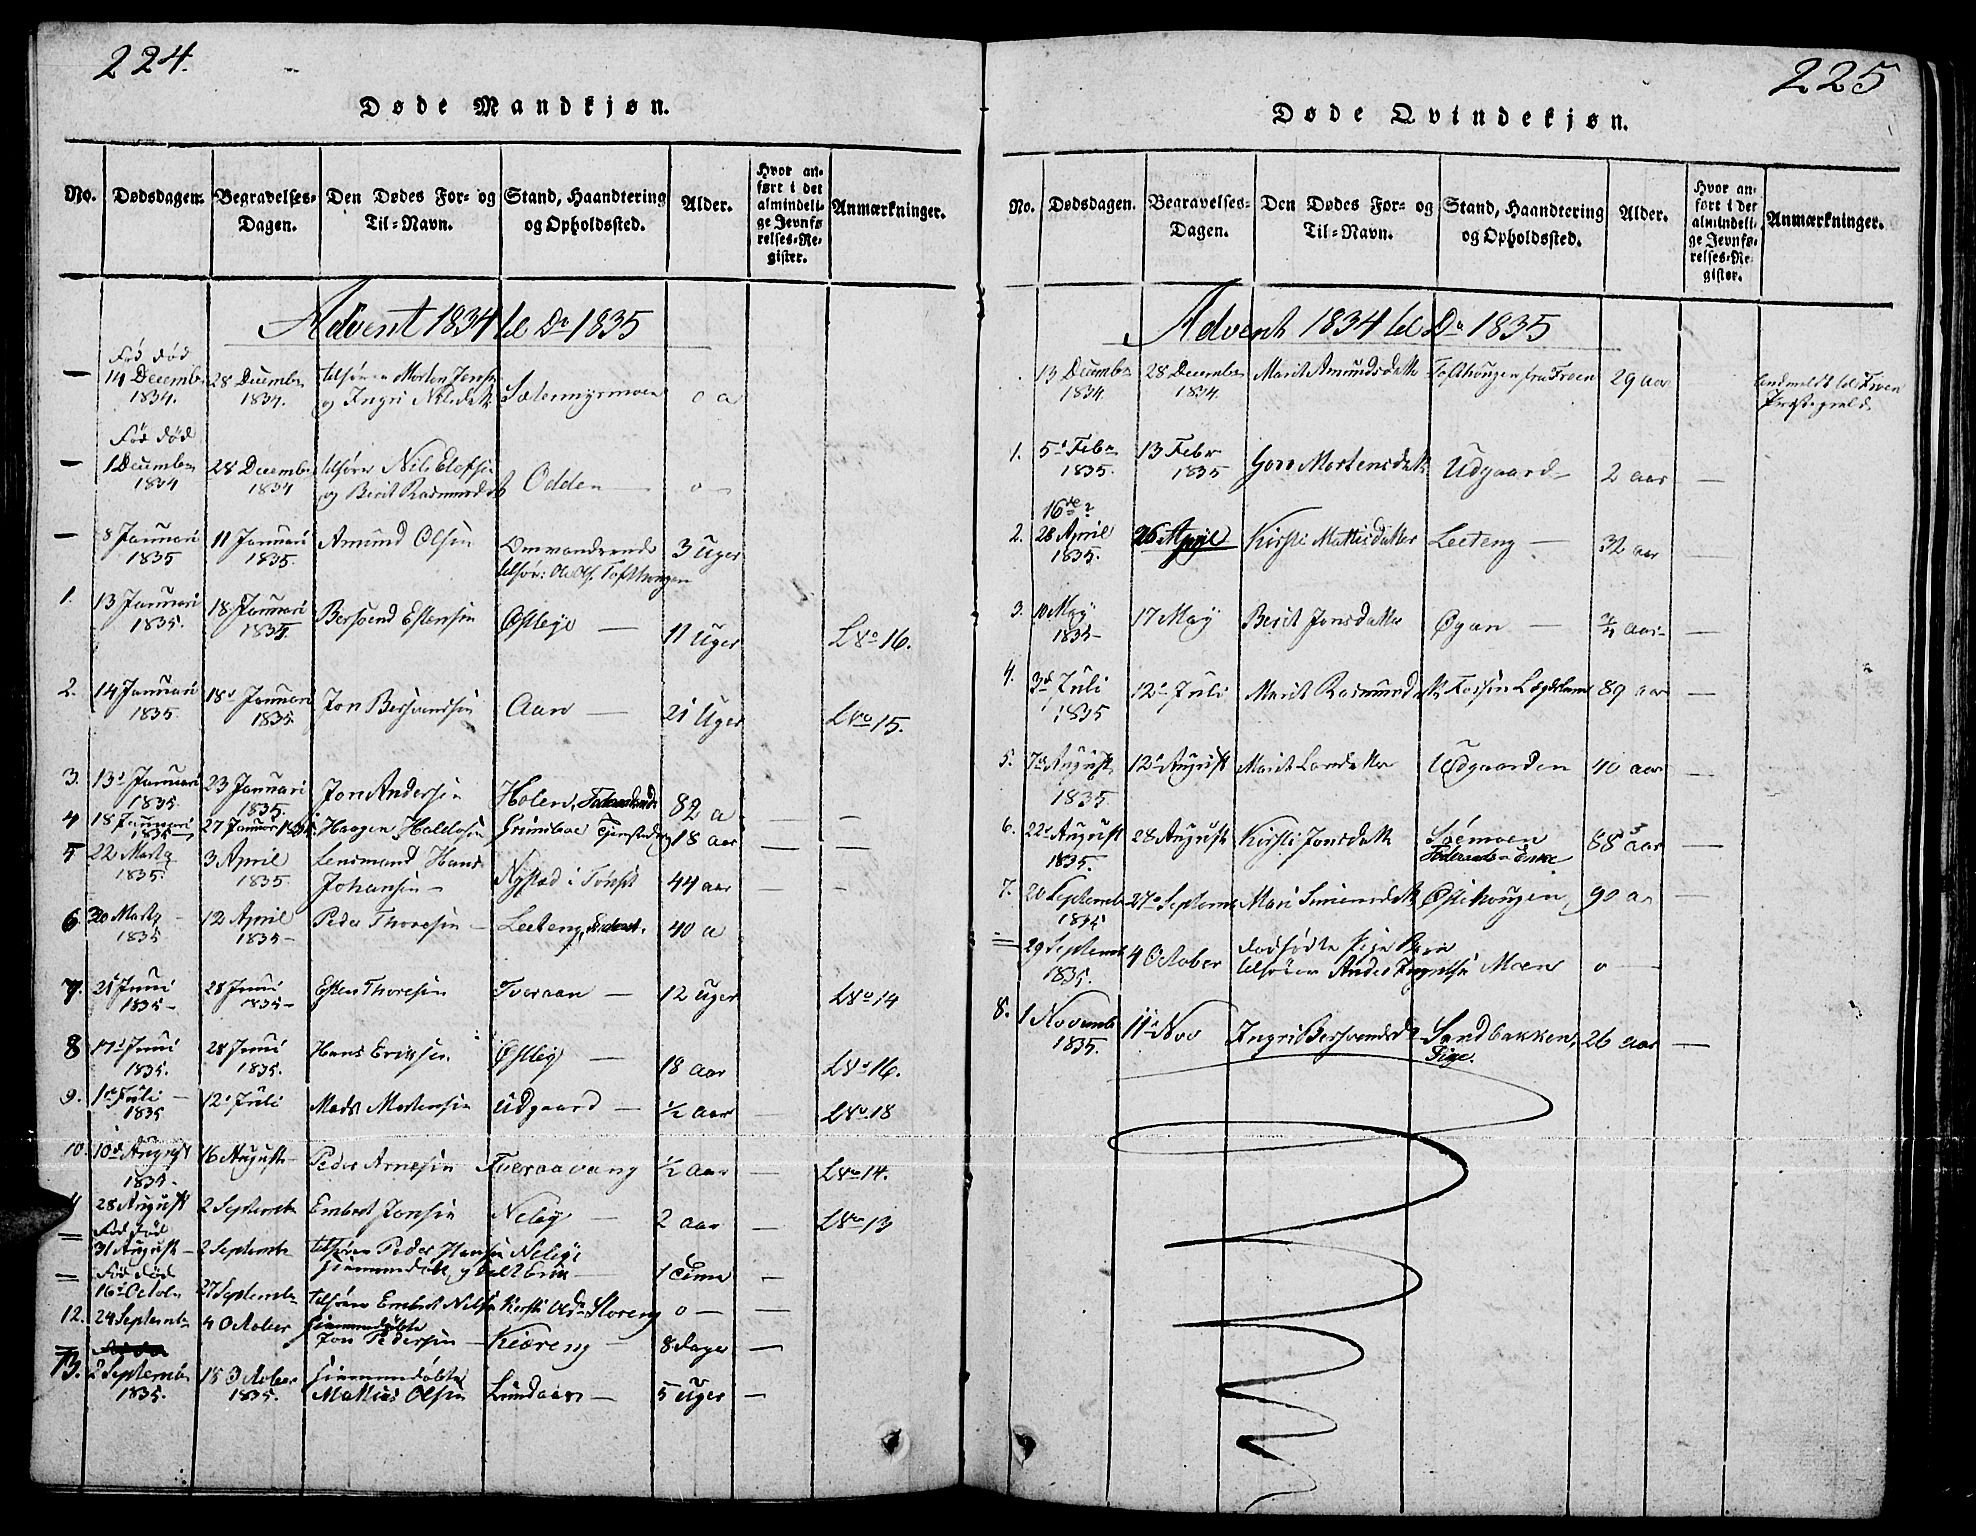 224.
Døde Mandkjøn.
No. Dødsdagen. Begravelses-Dagen. Den Dødes For- og Til-Navn. Stand, Haandtering og Opholdssted. Alder. Hvor anført i det almindelige Jevnførelses-Register. Anmærkninger.
Advent 1834 til Do 1835
Fød død
— 14 Decemb 1834. 28 Decembr 1834. tilføren Morton Jens og Ingri Nilsdatt Sætermyrmoen o a
Fød død
— 1 Decembr 1834 28 Decembr 1834 tilfører Nils Elofsen og Berit Rasmusd Odden — o —
— 8 Januari 1835 11 Januari 1835. Amund Olsen Omvandrende 3 Uger
1. 13 Januari 1835. 18 Januari 1835. Bersvend Estensen Østbye — 11 Uger L No 16.
2. 14 Januari 1835. 18 Januari 1835 Jon Bersvendsen Aan — 21 Uger L No 15.
3. 13 Januari 1835. 23 Januari 1835. Jon Andersen Holen, 82 a — —
4 18 Januari 1835 27 Januar 1835 Haagen Haldosen Grimsboe 18 aar
5 22 Marty 1835. 3 April 1835. Lensmand Hans Johansen — Nystad i Tønset 44 aar — —
6 30 Marty 1835 12 April 1835 — Peder Thoresen — Leeteng, 40 a
7. 21 Juni 1835 — 28 Juni 1835 — Esten Thoresen Tveraan — 12 Uger L No 14
8 17 Juni 1835. 28 Juni 1835. Hans Eriksen Østby — 18 aar L No 16.
9. 1 Juli — 1835 12 Juli Mads Mortensen Udgaard — 1/2 aar — L No 18
10. 10 August 1835 — 16 August — Peder Arnesen Tveraavang 1/2 aar — L No 14.
28 August 2 Septembr Embret Jonsen Neby — 2 aar — L No 13
= Fød død
31 August — 2 Septembr tilføren Peder Hansen Nebye
hiemmedøbt 1 Time —
= Fød død
16 Octobr 27 Septembr tilføren Embret Nilsen Kirsti Storeng o — —
12. 24 Septembr 4 October hiemmedøbte Jon Pedersen — Kiæreng — 8 Dager —
13. 2 Septemb 1835. 18 October 1835. hiemmedøbte Mathias Olsen Lundaasen — 5 Uger —
225
Døde Qvindekjøn.
No. Dødsdagen. Begravelses-Dagen. Den Dødes For- og Til-Navn. Stand, Haandtering og Opholdssted. Alder. Hvor anført i det almindelige Jevnførelses-Register. Anmærkninger.
Advent 1834 til Do 1835
13 Decembr 1834 28 Decembr 1834. Marit Amundsdatter Tofthougen fra Froen 29 aar — Indmeldt til Froen Præstegield
1. 5 Febr 1835. 13 Febr 1835 Goro Mortensdatt Udgaard — 2 aar —
16de?
2. 28 April 1835. 26 April Kirsti Mattisdatter Leeteng — 32 aar —
3. 10 May 1835 — 17 May Berit Jonsdatter Øyan — 3/4 aar — —
4. 3d Juli 1835 12 Juli Marit Rasmusd Fossen Lægdslem 89 aar —
5. 7 August 1835. 12 August Marit Larsdatter Udgaarden 40 aar —
6. 22 August 1835. 28 August Kirsti Jonsdatt Soemoen Enke 88 aar —
7. 20 Septembr 1835 27 Septemb Mari Simensdatt Østhougen 90 a. —
= 29 Septemb 1835. 4 October dødfødte Pige Barn tilføren Anders Ingvalsen Moen o —
8. 1 Novemb 1835. 11 Nov Ingri Bersvendsd Sandbakken, Pige. 26 aar —